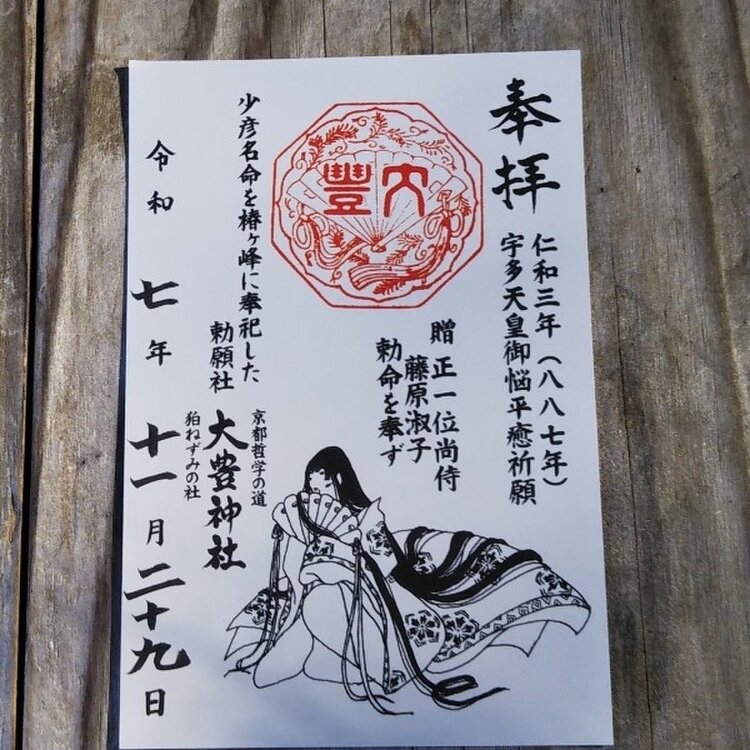 奉拝
仁和三年（八八七年）
宇多天皇御悩平癒祈願
贈 正一位尚侍
藤原淑子
勅命を奉ず
大豐
少彦名命を椿ヶ峰に奉祀した
勅願社
京都哲学の道
大豊神社
狛ねずみの社
令和 七年 十一月二十九日